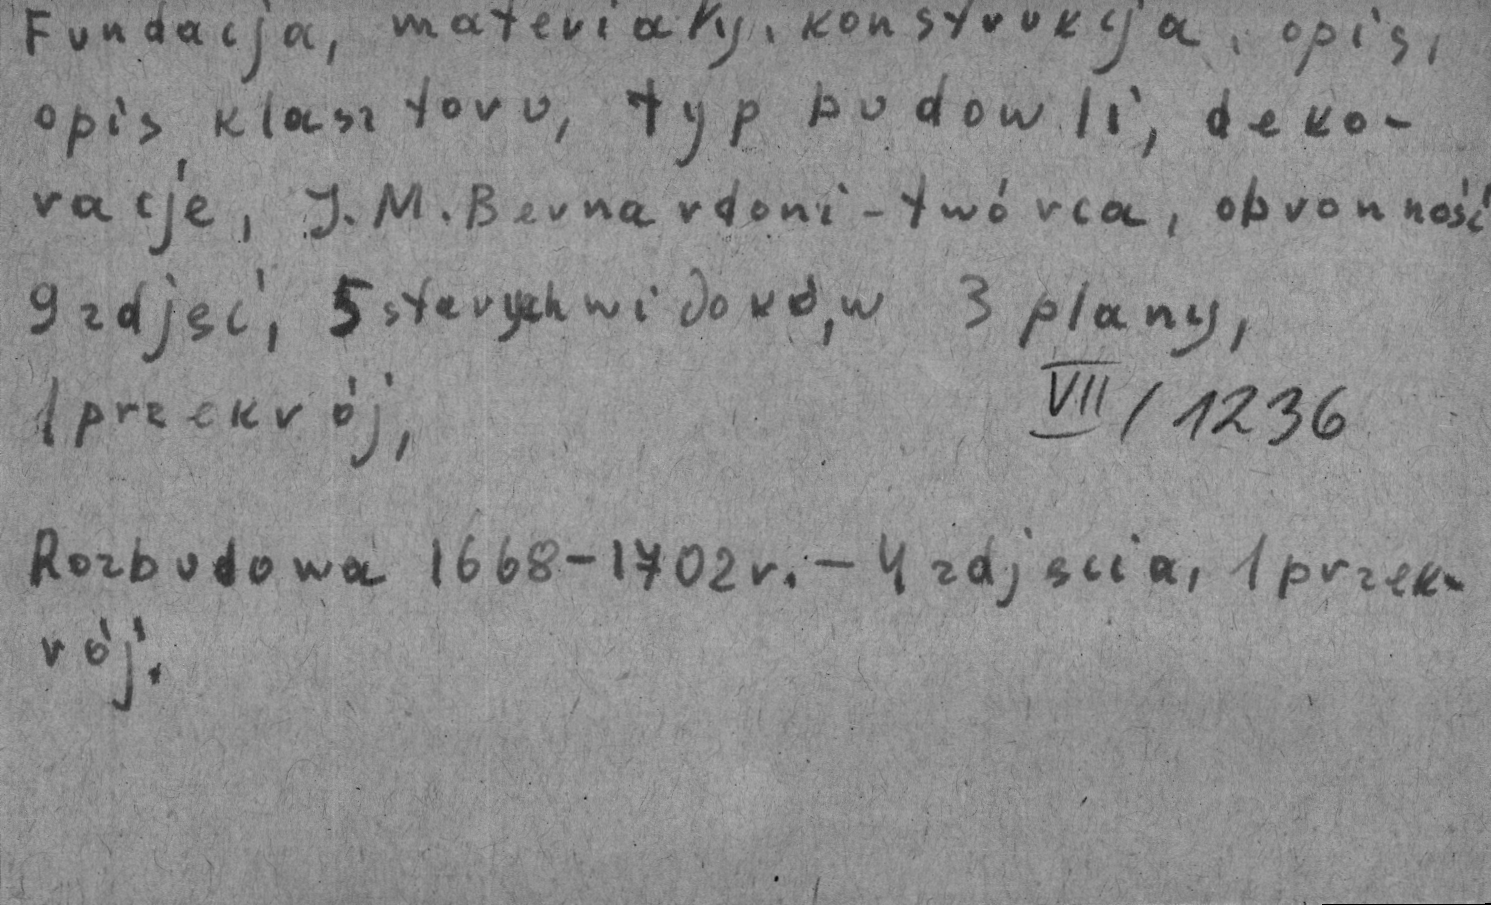 Fundacja, materiały, konstrukcja, opis,
opis klasztoru, typ budowli, deko-
racje, J. M. Bernardoni - twórca, obronność
9 zdjęć, 5 starych widoków, 3 plany,
1 przekrój,
VII / 1236
Rozbudowa 1668-1702 r. - 4 zdjęcia, 1 przek-
rój.